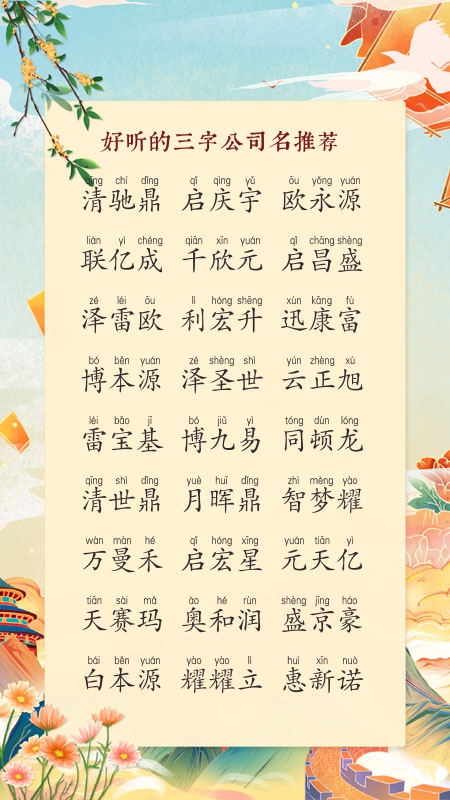 好听的三字公司名推荐
qīng chí dǐng qǐ qìng yǔ ōu yǒng yuán
清驰鼎 启庆宇 欧永源
lián yì chéng qiān xīn yuán qǐ chāng shèng
联亿成 千欣元 启昌盛
zé léi ōu lì hóng shēng xùn kāng fù
泽雷欧 利宏升 迅康富
bó běn yuán zé shèng shì yún zhèng xù
博本源 泽圣世 云正旭
léi bǎo jī bó jiǔ yì tóng dùn lóng
雷宝基 博九易 同顿龙
qīng shì dǐng yuè huī dǐng zhì mèng yào
清世鼎 月晖鼎 智梦耀
wàn màn hé qǐ hóng xīng yuán tiān yì
万曼禾 启宏星 元天亿
tiān sài mǎ ào hé rùn shèng jīng háo
天赛玛 奥和润 盛京豪
bái běn yuán yào yào lì huì xīn nuò
白本源 耀耀立 惠新诺